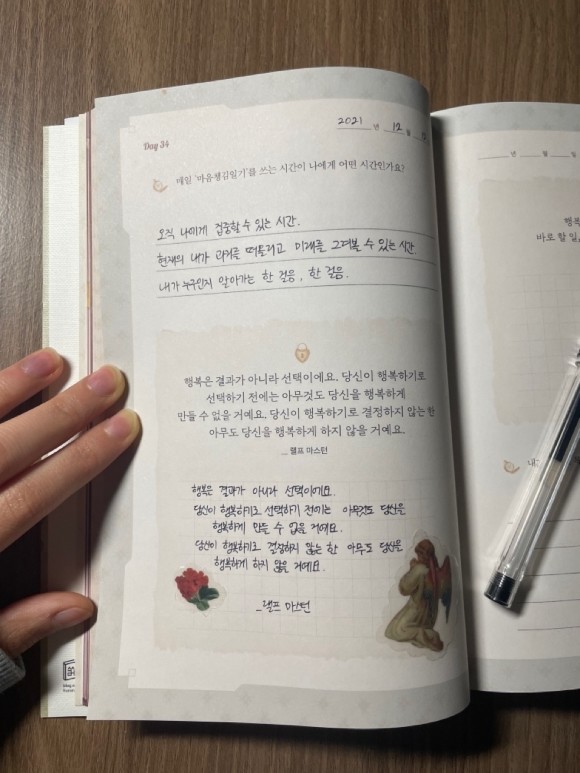 2021 년 12 월
Day 34
매일 '마음챙김일기'를 쓰는 시간이 나에게 어떤 시간인가요?
오직 나에게 집중할 수 있는 시간.
현재의 내가 과거를 떠올리고 미래를 그려볼 수 있는 시간.
내가 누구인지 알아가는 한 걸음, 한 걸음.
행복은 결과가 아니라 선택이에요. 당신이 행복하기로
선택하기 전에는 아무것도 당신을 행복하게
만들 수 없을 거예요. 당신이 행복하기로 결정하지 않는 한
아무도 당신을 행복하게 하지 않을 거예요.
_ 랠프 마스턴
행복은 결과가 아니라 선택이에요.
당신이 행복하기로 선택하기 전에는 아무것도 당신을
행복하게 만들 수 없을 거예요.
당신이 행복하기로 결정하지 않는 한 아무도 당신을
행복하게 하지 않을 거예요.
_랠프 마스턴
년 월
행복
바로 할 일,
내